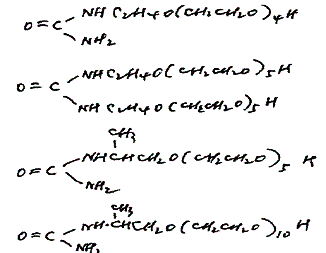 NHC2H4O(CH2CH2O)4H
O=C
NH2
NHC2H4O(CH2CH2O)5H
O=C
NHC2H4O(CH2CH2O)5H
CH3
NHCHCH2O(CH2CH2O)5H
O=C
NH2
CH3
NH·CHCH2O(CH2CH2O)10H
O=C
NH2